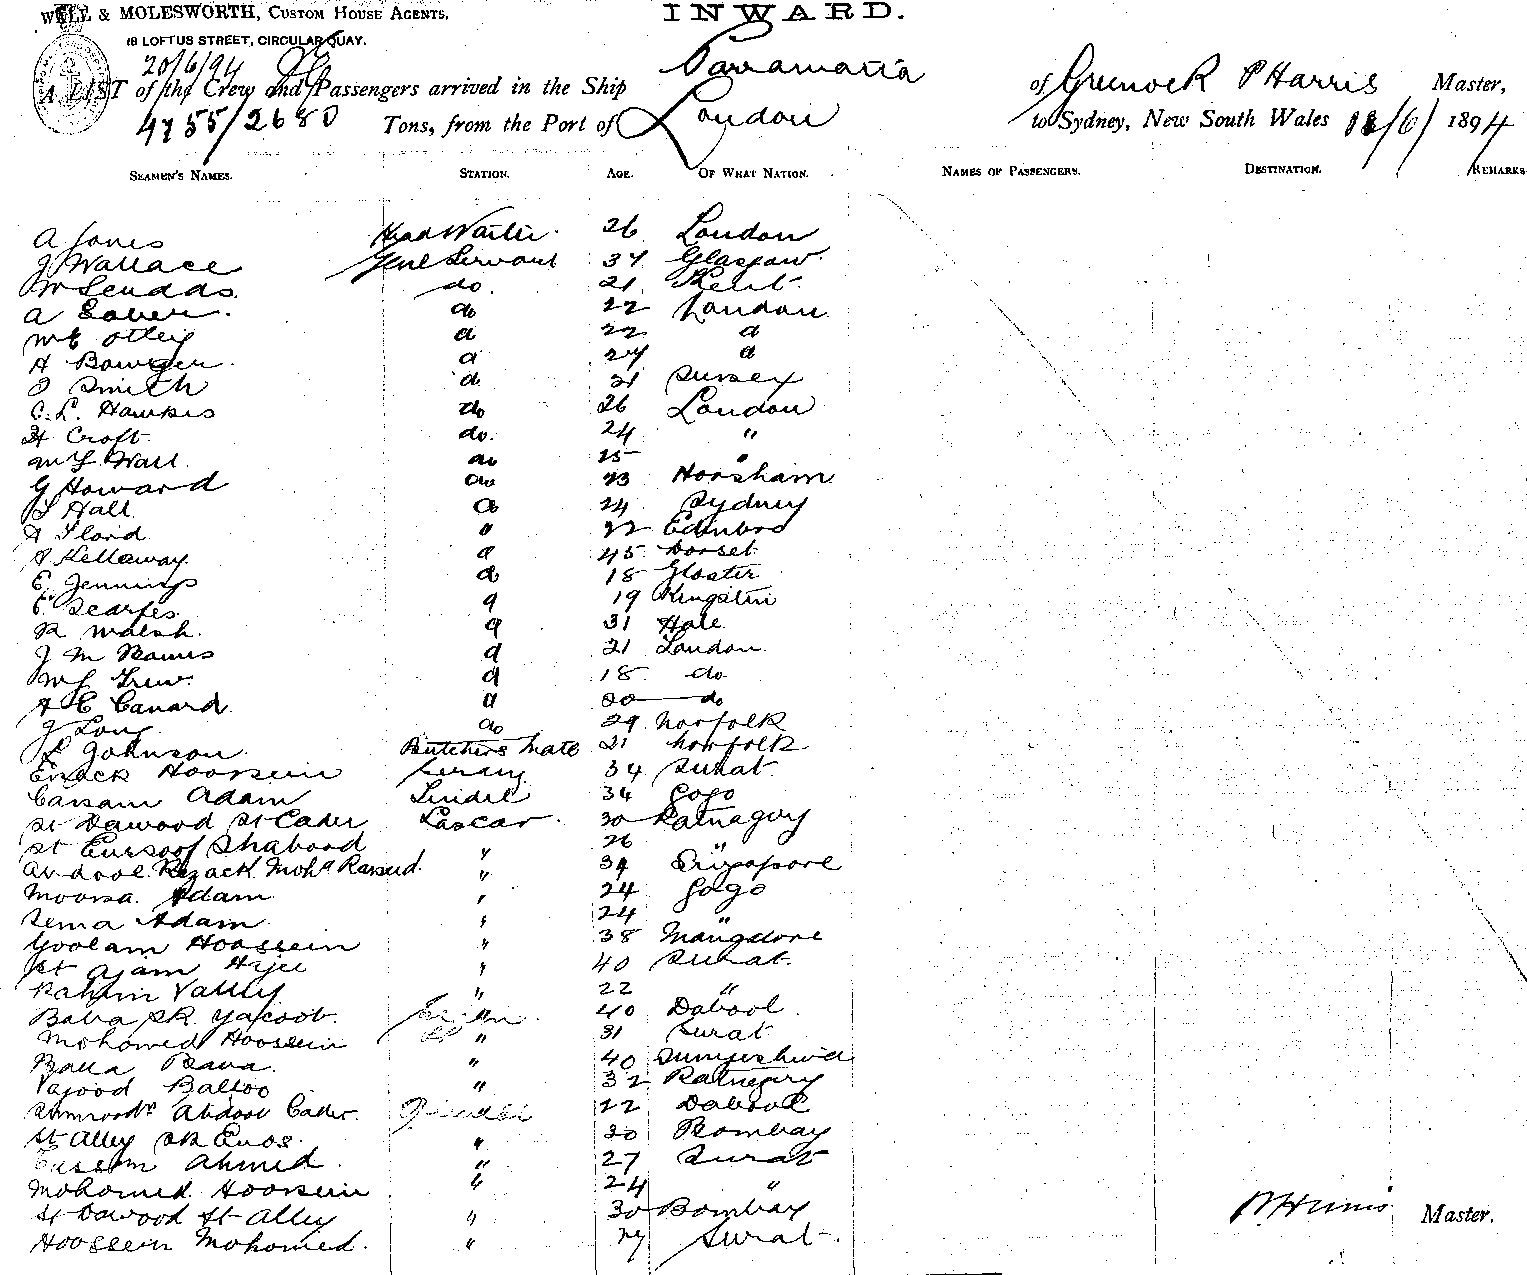 WEILE & MOLESWORTH, CUSTOM HOUSE AGENTS.
INWARD.
18 LOFTUS STREET, CIRCULAR QUAY.
20/6/94
A LIST of the Crew and Passengers arrived in the Ship Parramatta of Greenock P Harris Master,
4755/2680 Tons, from the Port of London to Sydney, New South Wales 18/6/1894
SEAMEN'S NAMES. STATION. AGE. OF WHAT NATION. NAMES OF PASSENGERS. DESTINATION. REMARKS
A Jones Head Waiter 26 London
J Wallace Genl Servant 34 Glasgow
do. 21 Kent
A do 22 London
Wm E Otley d 22 d
H d 24 d
J Smith d 21 Surrey
C. L. Hawkes do 26 London
H Croft do. 24 "
Wm Wall do 25 "
G Howard do 23 Horsham
J Hall d 24 Sydney
A Flord " 22 Edinbro
A Kellaway d 45 Dorset
E. Jennings d 18 Gloster
E. Scarfes d 19 Kingston
R Walsh. d 31
J M d 21 London
Wm d 18 do
A E Canard d 20 do
J Long do 29 Norfolk
L Johnson Butchers Mate 21 Norfolk
Hoossein Serang 34 Surat
Cassam Adam Tindel 34 Gogo
St Dawood St Cader Lascar 30 Ratnagory
St Eusoof Shabood " 26 "
Abdool Rezack Mohd " 34 Singapore
Moosa Adam " 24 Gogo
Adam " 24 "
Goolam Hoossein " 38 Mangalore
St Ajam Hajee " 40 Surat
Rahim Valley " 22 "
Baba SK Yacoob. 40 Dabool
Mohomed Hoossein " 31 Surat
Balla Bawa " 40
Baltoo " 32 Ratnegery
Abdool Cader 22 Dabool
St Alley SK Enos. " 30 Bombay
Ahmed " 27 Surat
Mohomed Hoossein " 24 "
St Dawood St Alley " 30 Bombay
Hoossein Mohomed. " 27 Surat
P Harris Master.